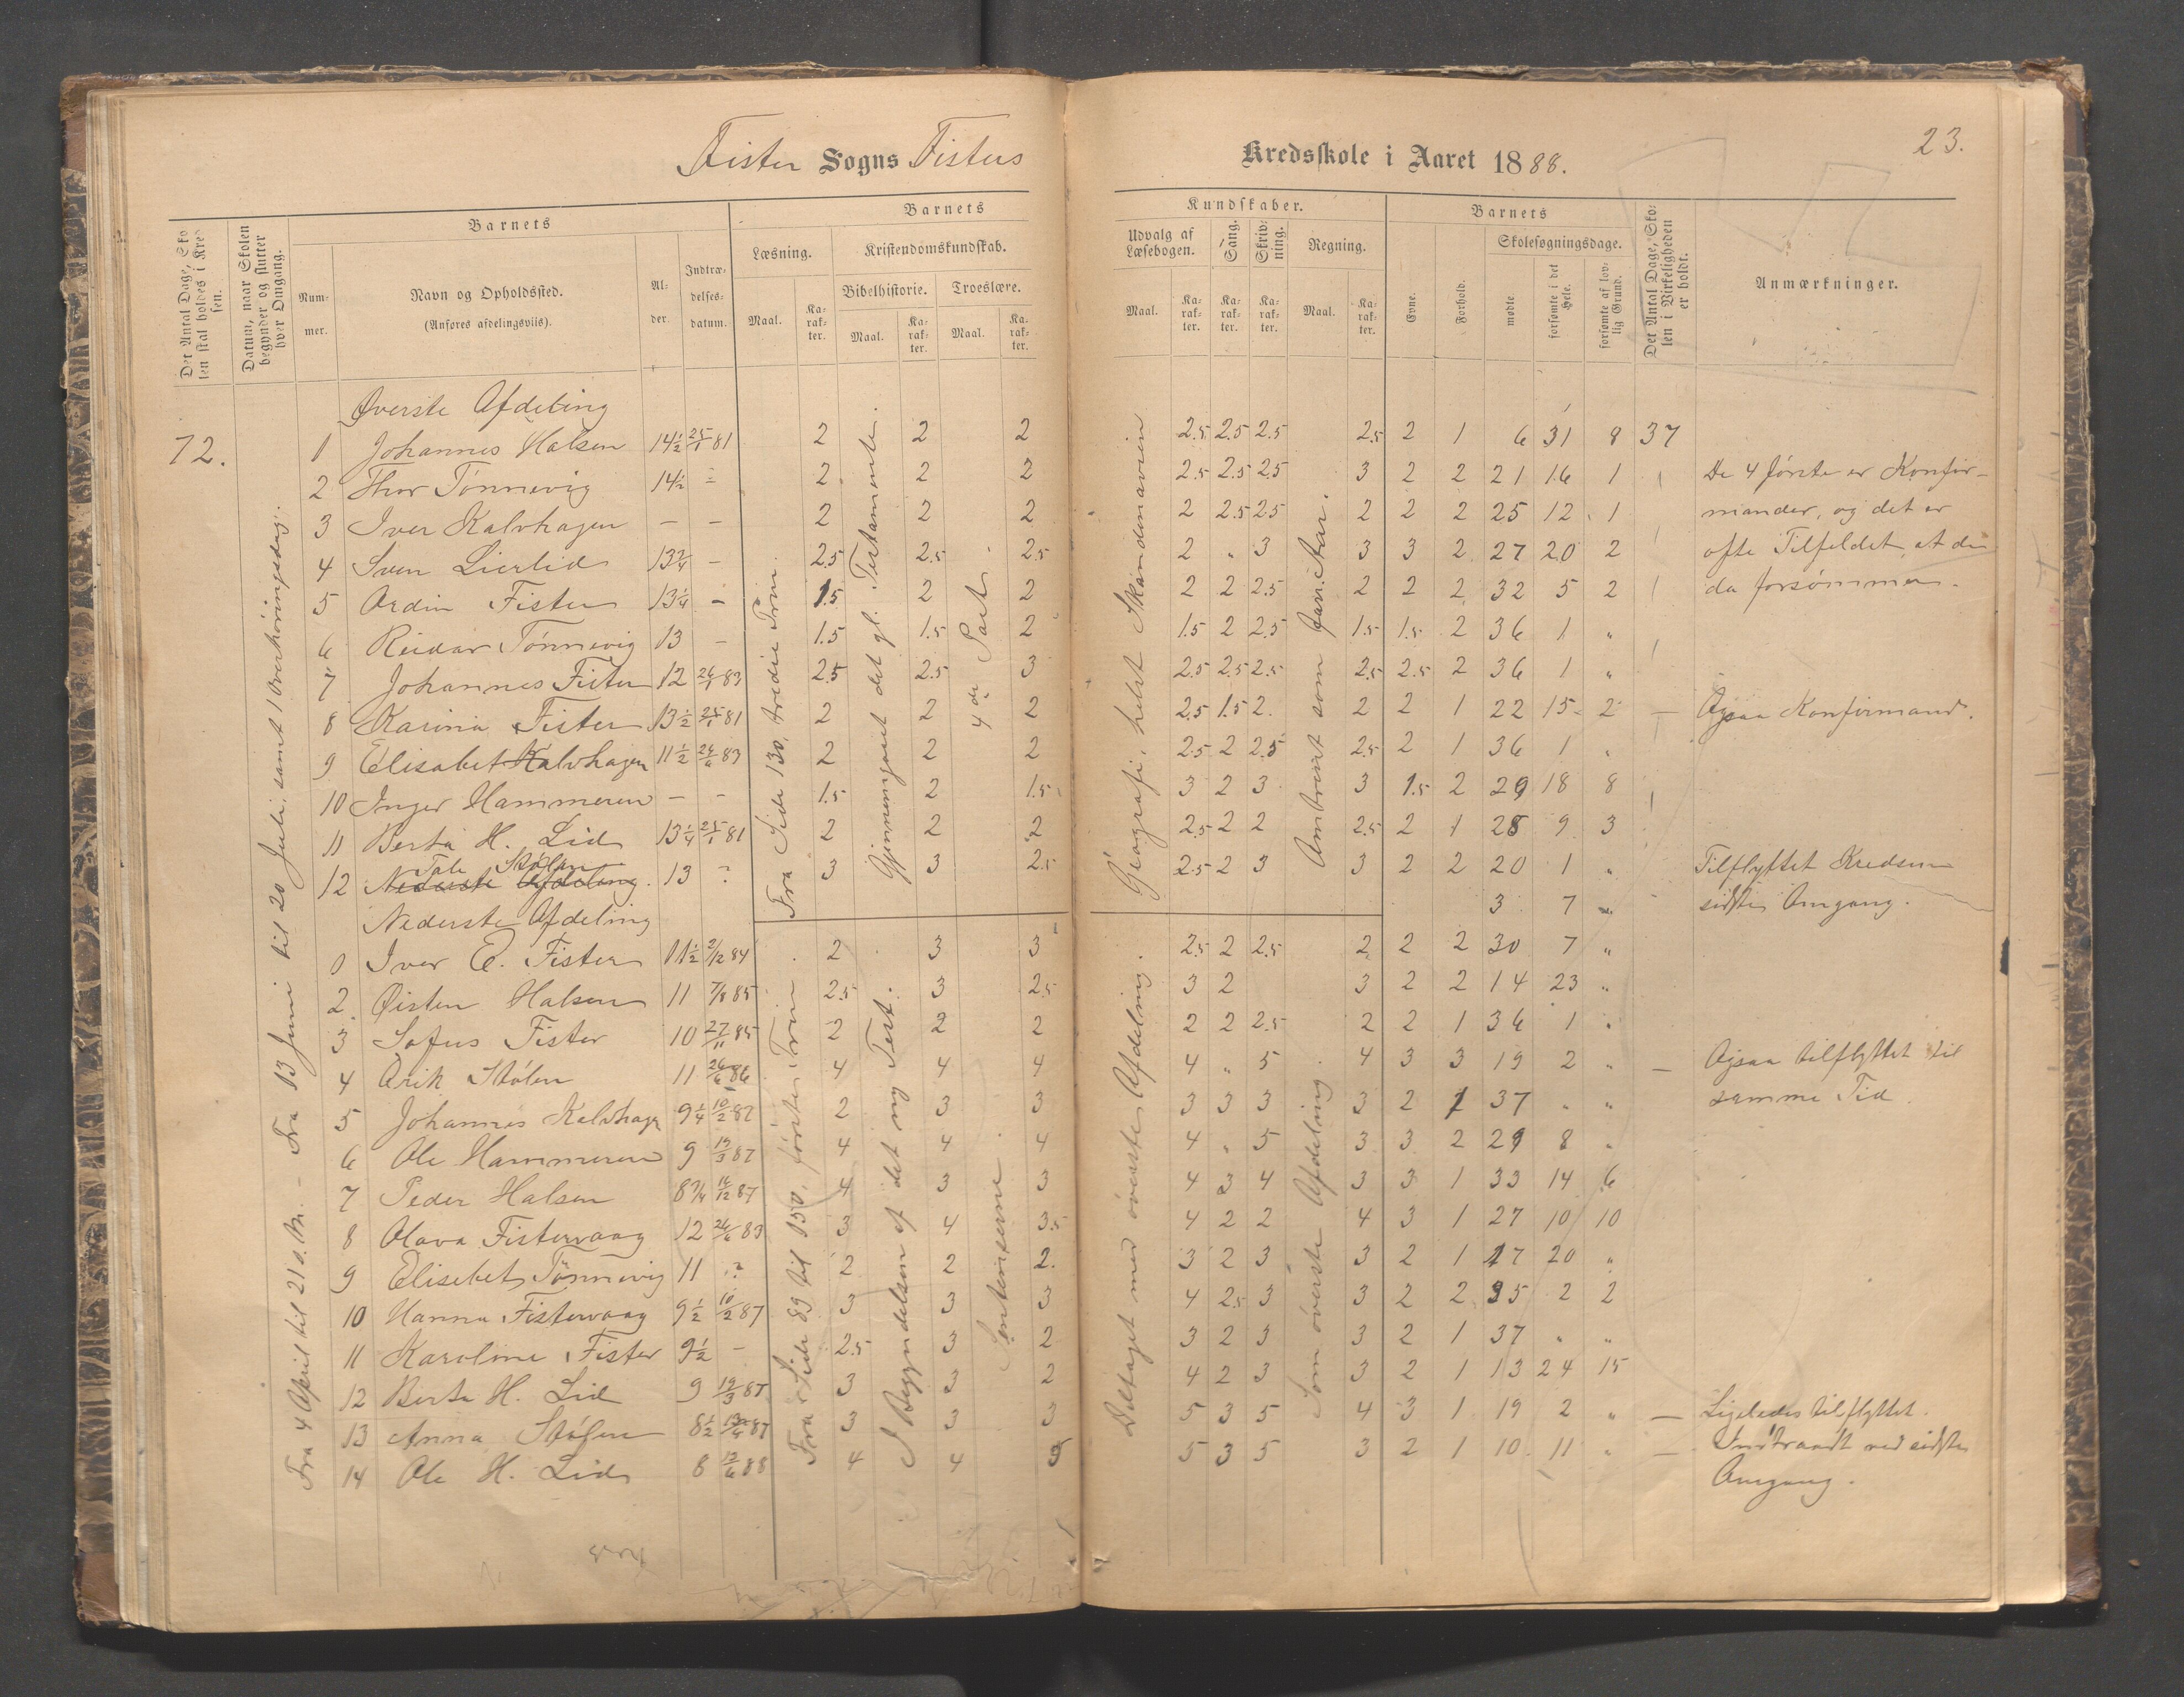 Fister Sogns Fisters Kredsskole i Aaret 1888.
23.
Det Antal Dage, Skolen skal holdes i Kredsen.
Datum, naar Skolen begynder og slutter hver Omgang.
Barnets
Nummer.
Navn og Opholdssted.
(Anføres afdelingsviis).
Alder.
Indtrædelsesdatum.
Barnets Kundskaber.
Læsning.
Kristendomskundskab.
Bibelhistorie.
Troeslære.
Udvalg af Læsebogen.
Sang.
Skrivning.
Regning.
Maal. Karakter.
Barnets
Evne.
Forhold.
Skolesøgningsdage.
mødte
forsømte i det Hele.
forsømte af lovlig Grund.
Det Antal Dage, Skolen i Virkeligheden er holdt.
Anmærkninger.
72.
Fra 4 April til 21 s. M. - Fra 13 Juni til 20 Juli, samt 1 Overhøringsdag.
Øverste Afdeling
1 Johannes Halsen 14½ 25/1 81 2 2 2 2.5 2.5 2.5 2.5 2 1 6 31 8 37
2 Thor Tønnevig 14½ - 2 2 2 2.5 2.5 2.5 3 2 2 21 16 1 De 4 første er Konfir-
3 Iver Kalvhagen - - 2 2 2 2 2.5 2.5 2 2 2 25 12 1 mander, og det er
4 Sven Lierlid 13¾ - 2.5 2.5 2.5 2 " 3 3 3 2 27 20 2 ofte Tilfeldet, at de
5 Ardin Fister 13¼ - 1.5 2 2 2 2 2.5 2 2 2 32 5 2 da forsømmer.
6 Reidar Tønnevig 13 - 1.5 1.5 2 1.5 2 2.5 1.5 1.5 2 36 1 "
7 Johannes Fister 12 26/1 83 2.5 2.5 3 2.5 2.5 2.5 2.5 2.5 2 36 1 "
8 Karina Fister 13½ 25/1 81 2 2 2 2.5 1.5 2. 2 2 1 22 15 2 - Ogsaa Konfirmand.
9 Elisabet Kalvhagen 11½ 26/6 83 2 2 2 2.5 2 2.5 2.5 2 1 36 1 "
10 Inger Hammeren - - 1.5 2 1.5 3 2 3 3 1.5 2 29 18 8
11 Berta H. Lid 13¼ 25/1 81 2 2 2 2.5 2 2 2.5 2 1 28 9 3
12 Tale Stølen 13 ? 3 3 2.5 2.5 2 3 3 2 2 20 1 " Tilflyttet Kredsen
Nederste Afdeling.
3 7 " sidste Omgang.
Fra Side 130, tredie Trin.
Gjennemgaaet det gl. Testamente.
4de Part.
Geografi, helst Skandenavien
Omtrent som forr. Aar.
Nederste Afdeling
Iver E. Fister 11½ 2/12 84 2 3 3 2.5 2 2.5 2 2 2 30 7 "
2. Øisten Halsen 11 7/8 85 2.5 3 2.5 3 2 3 2 2 14 23 "
3 Sofus Fister 10 27/11 85 2 2 2 2 2 2.5 2 2 1 36 1 "
4 Arik Stølen 11 26/6 86 4 4 4 4 " 5 4 3 3 19 2 " - Ogsaa tilflyttet til
5 Johannes Kalvhagn 9¼ 10/2 87 2 3 3 3 3 3 3 2 1 37 " " samme Tid.
6 Ole Hammeren 9 19/3 87 4 4 4 4 " 5 3 3 2 29 8 "
7 Peder Halsen 8¾ 16/12 87 4 3 3 4 3 4 3 3 1 33 14 6
8 Olava Fistervaag 12 26/6 83 3 4 3.5 4 2 2 4 3 1 27 10 10
9 Elisebet Tønnevig 11 ? 2 2 2. 3 2 3 3 2 1 17 20 "
10 Hanna Fistervaag 9½ 10/2 87 3 3 3 4 2.5 3 3 2 2 35 2 2
11 Karoline Fister 9½ - 2.5 3 2 3 2 3 3 2 1 37 " "
12 Berta H. Lid 9 19/3 87 3 3 2 4 2 3 3 2 1 13 24 15
13 Anna Stølen 8½ 13/4 87 3 3 3 5 3 5 4 3 1 19 2 " - Ligeledes tilflyttet.
14 Ole H. Lid 8 13/6 88 4 4 5 5 3 5 3 2 1 10 11 " - Indtraadt ved sidste
Omgang.
Fra Side 89 til 150, første Trin
I Begyndelsen af det ny Test.
Sentenserne.
Deltaget med øverste Afdeling.
Som øverste Afdeling.